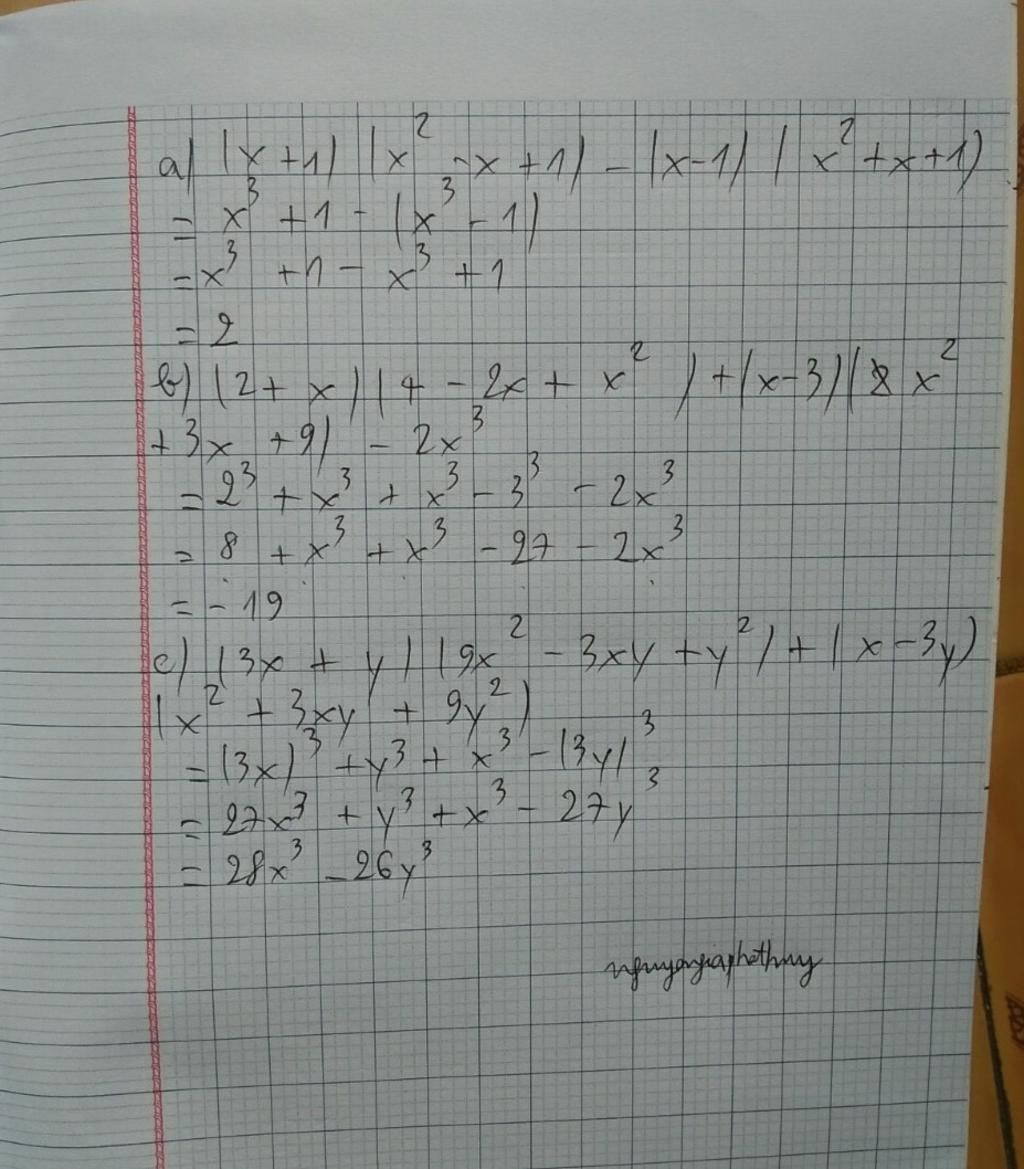 a) (x+1) (x² - x + 1) - (x-1) (x² + x + 1)
= x³ + 1 - (x³ - 1)
= x³ + 1 - x³ + 1
= 2
b) (2 + x) (4 - 2x + x²) + (x-3) (x²
+ 3x + 9) - 2x³
= 2³ + x³ + x³ - 3³ - 2x³
= 8 + x³ + x³ - 27 - 2x³
= - 19
c) (3x + y) (9x² - 3xy + y²) + (x - 3y)
(x² + 3xy + 9y²)
= (3x)³ + y³ + x³ - (3y)³
= 27x³ + y³ + x³ - 27y³
= 28x³ - 26y³